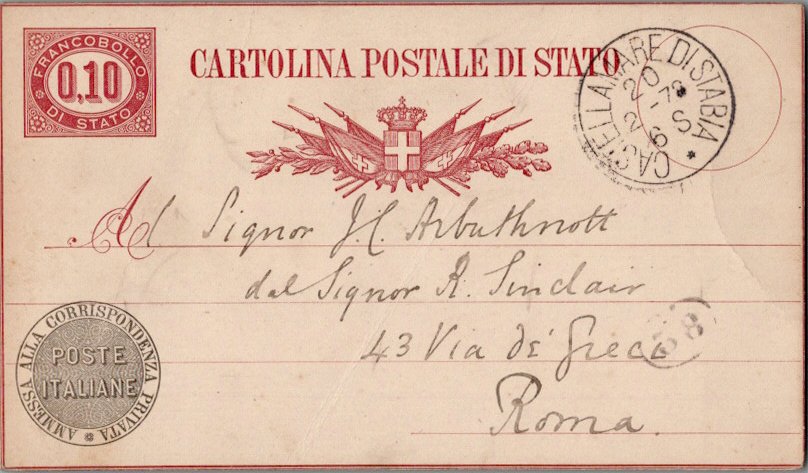 FRANCOBOLLO
0,10
DI STATO
CARTOLINA POSTALE DI STATO
CASTELLAMMARE DI STABIA
20
2 -78
6 S
Al Signor J. C. Arbuthnott
dal Signor R. Sinclair
43 Via de' Greci
Roma.
AMMESSA ALLA CORRISPONDENZA PRIVATA
POSTE
ITALIANE